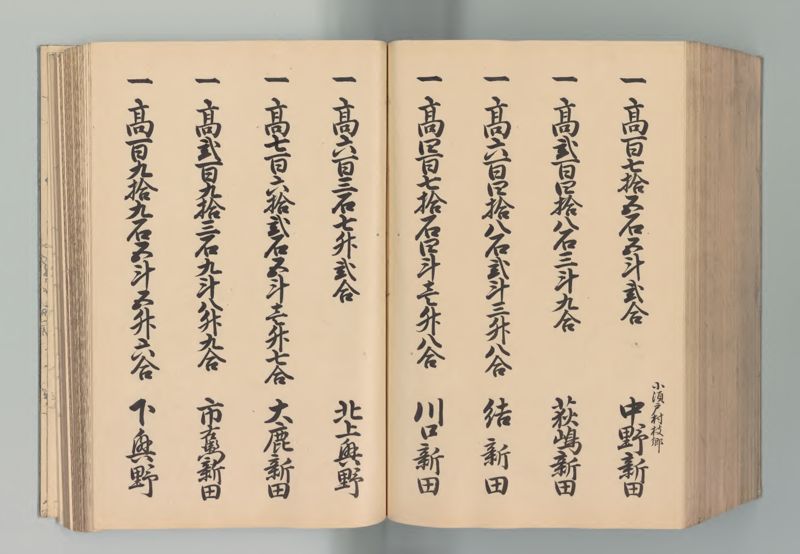 一 高百七拾五石五斗弐合 小須戸村枝郷 中野新田
一 高弐百四拾八石三斗九合 荻嶋新田
一 高六百四拾八石弐斗三升八合 結新田
一 高四百七拾石四斗壱升八合 川口新田
一 高六百三石七升弐合 北上興野
一 高七百六拾弐石五斗壱升七合 大鹿新田
一 高弐百九拾三石九斗八升九合 市萬新田
一 高百九拾九石五斗五升六合 下興野